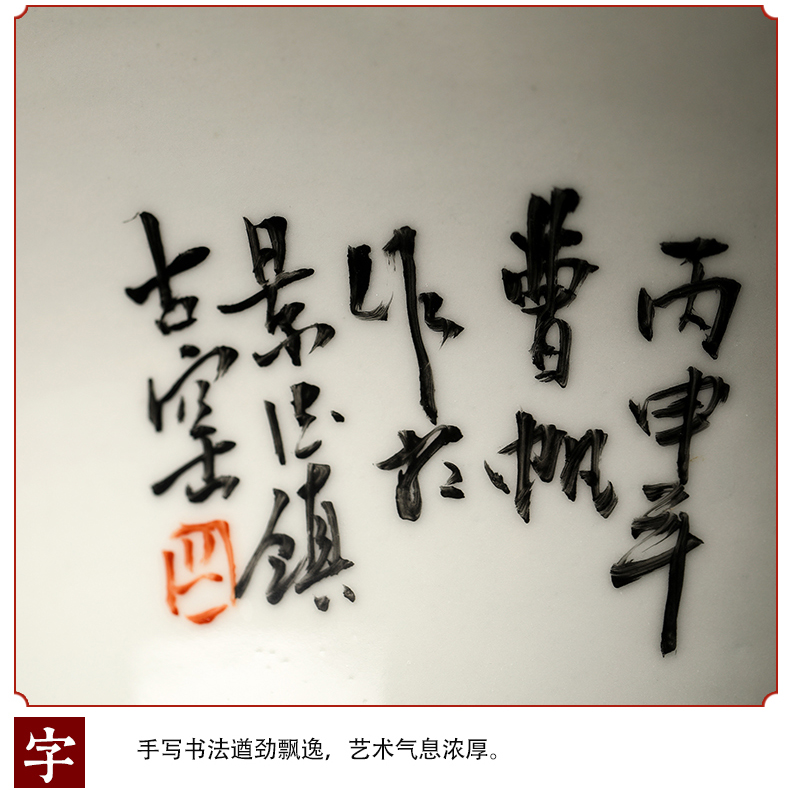 丙申年
曹帆
作于
景德镇
古窑
字
手写书法遒劲飘逸，艺术气息浓厚。